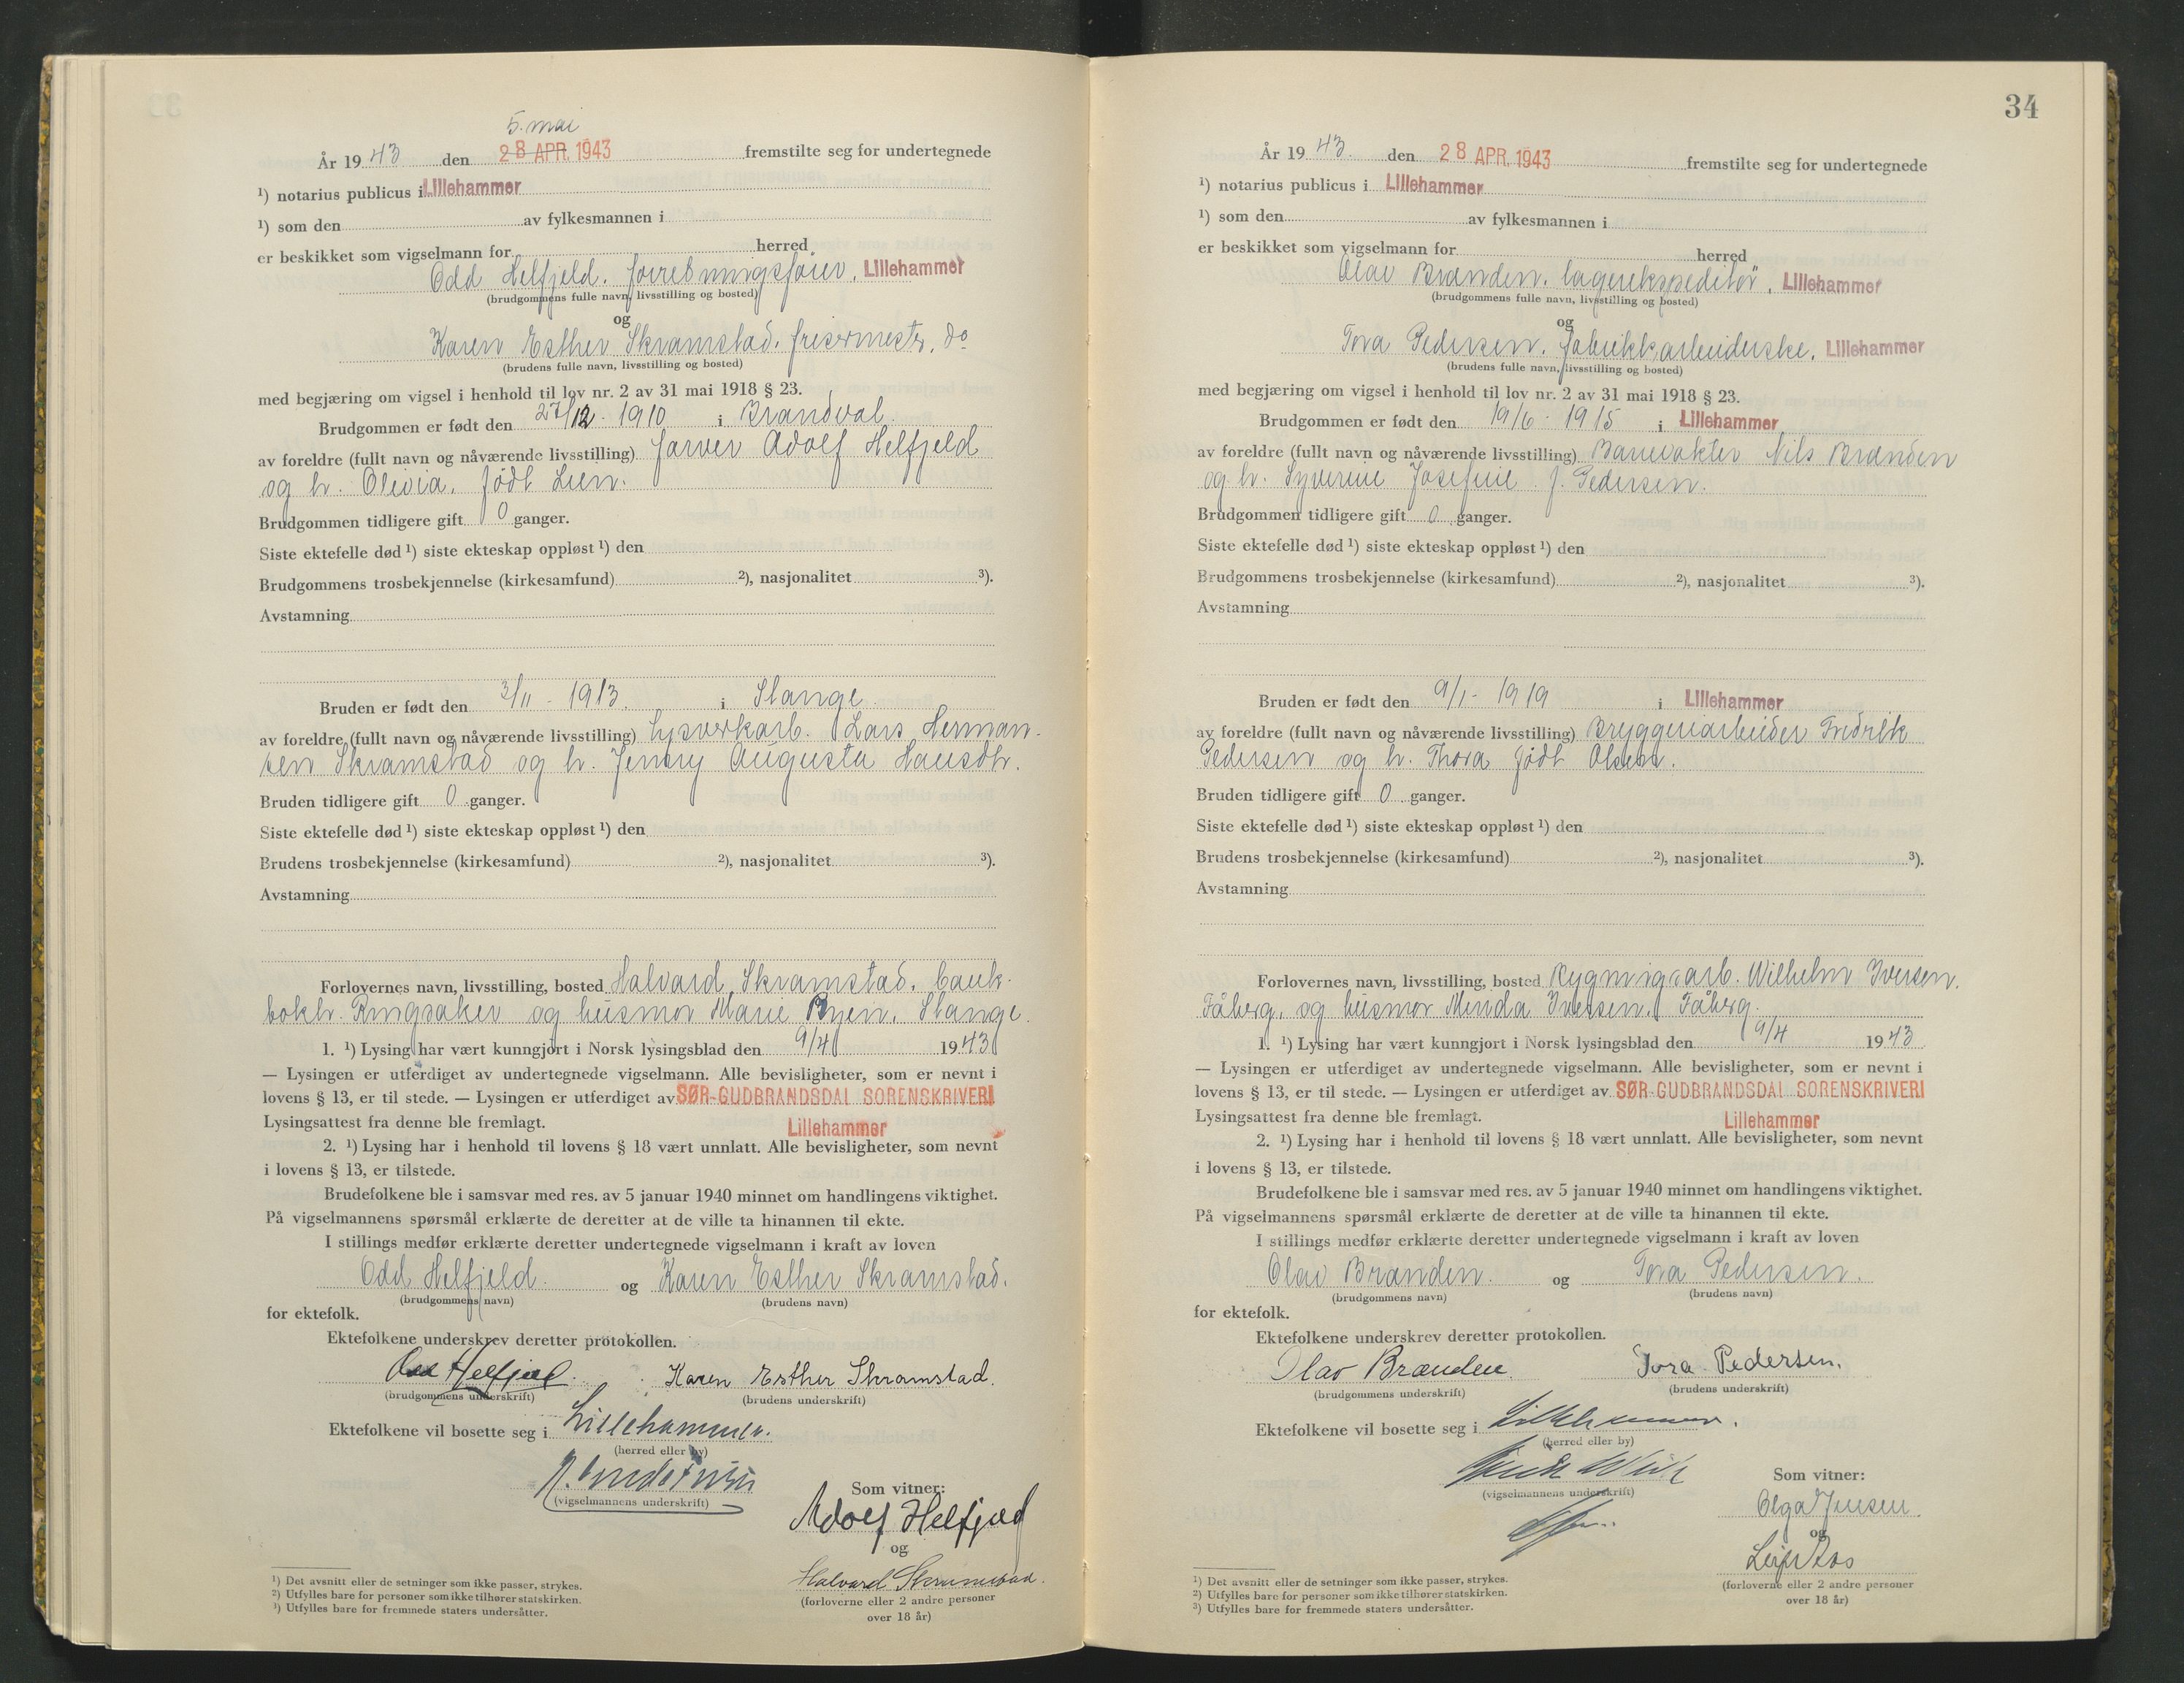 5. mai
År 19 43 den 28 APR. 1943 fremstilte seg for undertegnede
¹) notarius publicus i Lillehammer
¹) som den av fylkesmannen i
er beskikket som vigselmann for herred
Odd Helfjeld, forretningsfører, Lillehammer
(brudgommens fulle navn, livsstilling og bosted)
og
Karen Esther Skramstad, frisørmester, do
(brudens fulle navn, livsstilling og bosted)
med begjæring om vigsel i henhold til lov nr. 2 av 31 mai 1918 § 23.
Brudgommen er født den 27/12 - 1910 i Brandval
av foreldre (fullt navn og nåværende livsstilling) farver Adolf Helfjeld
og h. Olivia, født Lien.
Brudgommen tidligere gift 0 ganger.
Siste ektefelle død ¹) siste ekteskap oppløst ¹) den
Brudgommens trosbekjennelse (kirkesamfund) ²), nasjonalitet ³).
Avstamning
Bruden er født den 3/11 - 1913. i Stange
av foreldre (fullt navn og nåværende livsstilling) lysverkarb. Lars Herman-
sen Skramstad og h. Jenny Augusta Hansdtr.
Bruden tidligere gift 0 ganger.
Siste ektefelle død ¹) siste ekteskap oppløst ¹) den
Brudens trosbekjennelse (kirkesamfund) ²), nasjonalitet ³).
Avstamning
Forlovernes navn, livsstilling, bosted Halvard Skramstad, bank-
bokh. Ringsaker og husmor Marie Ryen, Stange.
1. ¹) Lysing har vært kunngjort i Norsk lysingsblad den 9/4 1943
— Lysingen er utferdiget av undertegnede vigselmann. Alle bevisligheter, som er nevnt i
lovens § 13, er til stede. — Lysingen er utferdiget av SØR-GUDBRANDSDAL SORENSKRIVERI
Lysingsattest fra denne ble fremlagt. Lillehammer
2. ¹) Lysing har i henhold til lovens § 18 vært unnlatt. Alle bevisligheter, som nevnt
i lovens § 13, er tilstede.
Brudefolkene ble i samsvar med res. av 5 januar 1940 minnet om handlingens viktighet.
På vigselmannens spørsmål erklærte de deretter at de ville ta hinannen til ekte.
I stillings medfør erklærte deretter undertegnede vigselmann i kraft av loven
Odd Helfjeld. og Karen Esther Skramstad.
(brudgommens navn) (brudens navn)
for ektefolk.
Ektefolkene underskrev deretter protokollen.
Odd Helfjeld. Karen Esther Skramstad.
(brudgommens underskrift) (brudens underskrift)
Ektefolkene vil bosette seg i Lillehammer.
(herred eller by)
(vigselmannens underskrift)
Som vitner:
Adolf Helfjeld
og
Halvard Skramstad.
(forloverne eller 2 andre personer
over 18 år)
¹) Det avsnitt eller de setninger som ikke passer, strykes.
²) Utfylles bare for personer som ikke tilhører statskirken.
³) Utfylles bare for fremmede staters undersåtter.
34
År 19 43. den 28 APR. 1943 fremstilte seg for undertegnede
¹) notarius publicus i Lillehammer
¹) som den av fylkesmannen i
er beskikket som vigselmann for herred
Olav Brænden, lagerekspeditør, Lillehammer
(brudgommens fulle navn, livsstilling og bosted)
og
Tora Pedersen, fabrikkarbeiderske, Lillehammer
(brudens fulle navn, livsstilling og bosted)
med begjæring om vigsel i henhold til lov nr. 2 av 31 mai 1918 § 23.
Brudgommen er født den 19/6 - 1915 i Lillehammer
av foreldre (fullt navn og nåværende livsstilling) Banevakter Nils Brænden
og h. Syverine Josefine f. Pedersen.
Brudgommen tidligere gift 0 ganger.
Siste ektefelle død ¹) siste ekteskap oppløst ¹) den
Brudgommens trosbekjennelse (kirkesamfund) ²), nasjonalitet ³).
Avstamning
Bruden er født den 9/1 - 1919 i Lillehammer
av foreldre (fullt navn og nåværende livsstilling) Bryggeriarbeider Fredrik
Pedersen og h. Thora født Olsen.
Bruden tidligere gift 0 ganger.
Siste ektefelle død ¹) siste ekteskap oppløst ¹) den
Brudens trosbekjennelse (kirkesamfund) ²), nasjonalitet ³).
Avstamning
Forlovernes navn, livsstilling, bosted Bygningsarb. Wilhelm Iversen,
Fåberg, og husmor Minda Iversen, Fåberg.
1. ¹) Lysing har vært kunngjort i Norsk lysingsblad den 9/4 1943
— Lysingen er utferdiget av undertegnede vigselmann. Alle bevisligheter, som er nevnt i
lovens § 13, er til stede. — Lysingen er utferdiget av SØR-GUDBRANDSDAL SORENSKRIVERI
Lysingsattest fra denne ble fremlagt. Lillehammer
2. ¹) Lysing har i henhold til lovens § 18 vært unnlatt. Alle bevisligheter, som nevnt
i lovens § 13, er tilstede.
Brudefolkene ble i samsvar med res. av 5 januar 1940 minnet om handlingens viktighet.
På vigselmannens spørsmål erklærte de deretter at de ville ta hinannen til ekte.
I stillings medfør erklærte deretter undertegnede vigselmann i kraft av loven
Olav Brænden. og Tora Pedersen.
(brudgommens navn) (brudens navn)
for ektefolk.
Ektefolkene underskrev deretter protokollen.
Olav Brænden. Tora Pedersen.
(brudgommens underskrift) (brudens underskrift)
Ektefolkene vil bosette seg i Lillehammer.
(herred eller by)
(vigselmannens underskrift)
Som vitner:
Olga Jensen.
og
Leif
(forloverne eller 2 andre personer
over 18 år)
¹) Det avsnitt eller de setninger som ikke passer, strykes.
²) Utfylles bare for personer som ikke tilhører statskirken.
³) Utfylles bare for fremmede staters undersåtter.